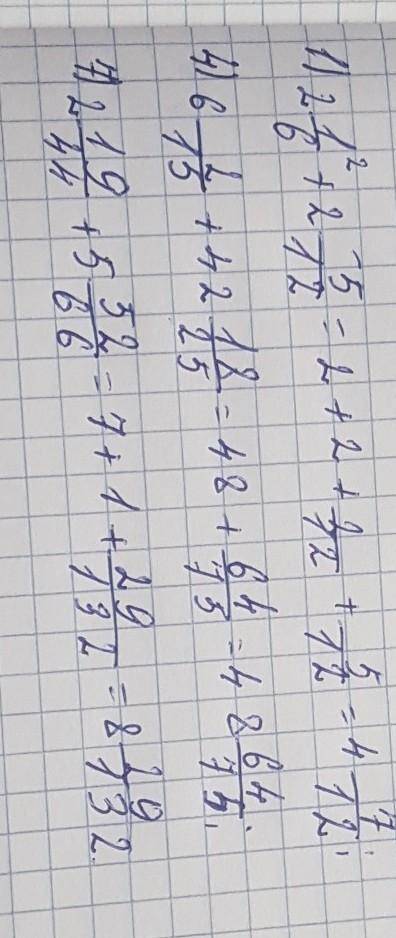 1) 2 1/6² + 2 5/12 = 2 + 2 + 2/12 + 5/12 = 4 7/12;
4) 6 2/15 + 42 18/25 = 48 + 64/75 = 48 64/75;
7) 2 19/44 + 5 52/66 = 7 + 1 + 29/132 = 8 29/132.